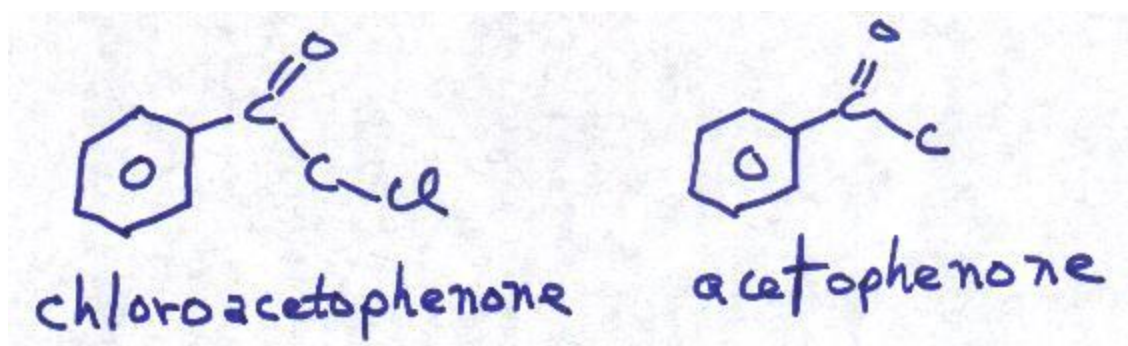 O O
C C
C Cl C
chloroacetophenone acetophenone